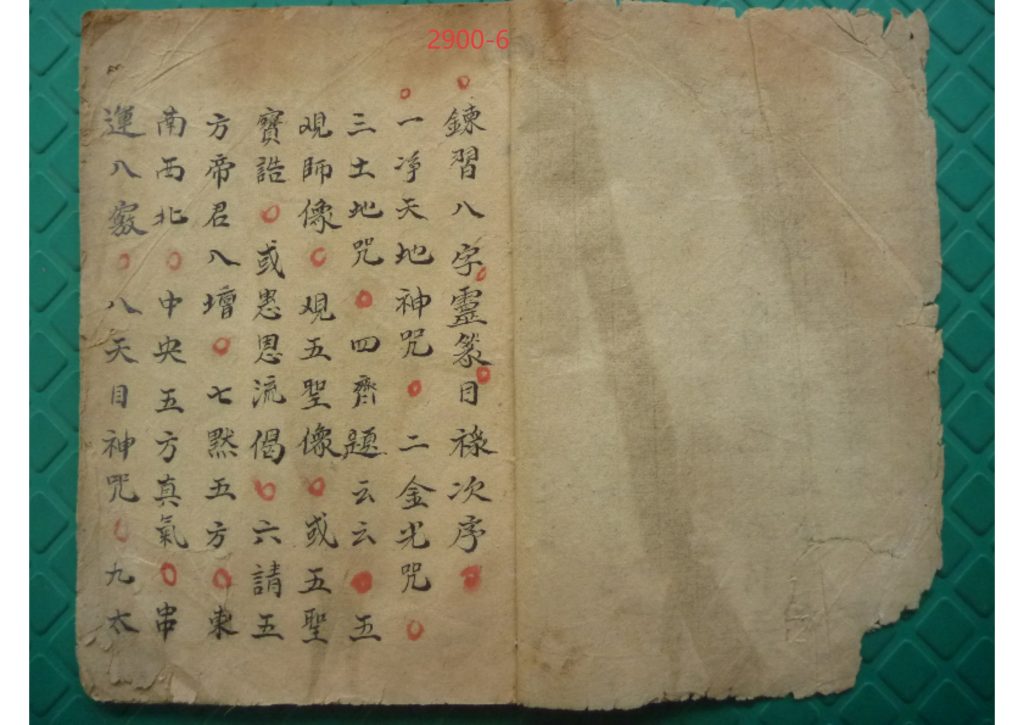 2900-6
鍊習八字靈篆目祿次序
一净天地神咒○二金光咒○
三土地咒○四齊題云云●五
观師像○观五聖像○或五聖
寶誥○或惠恩流偈○六請五
方帝君入壇○七黙五方○東
南西北○中央五方真氣○串
運八竅○八天目神咒○九太